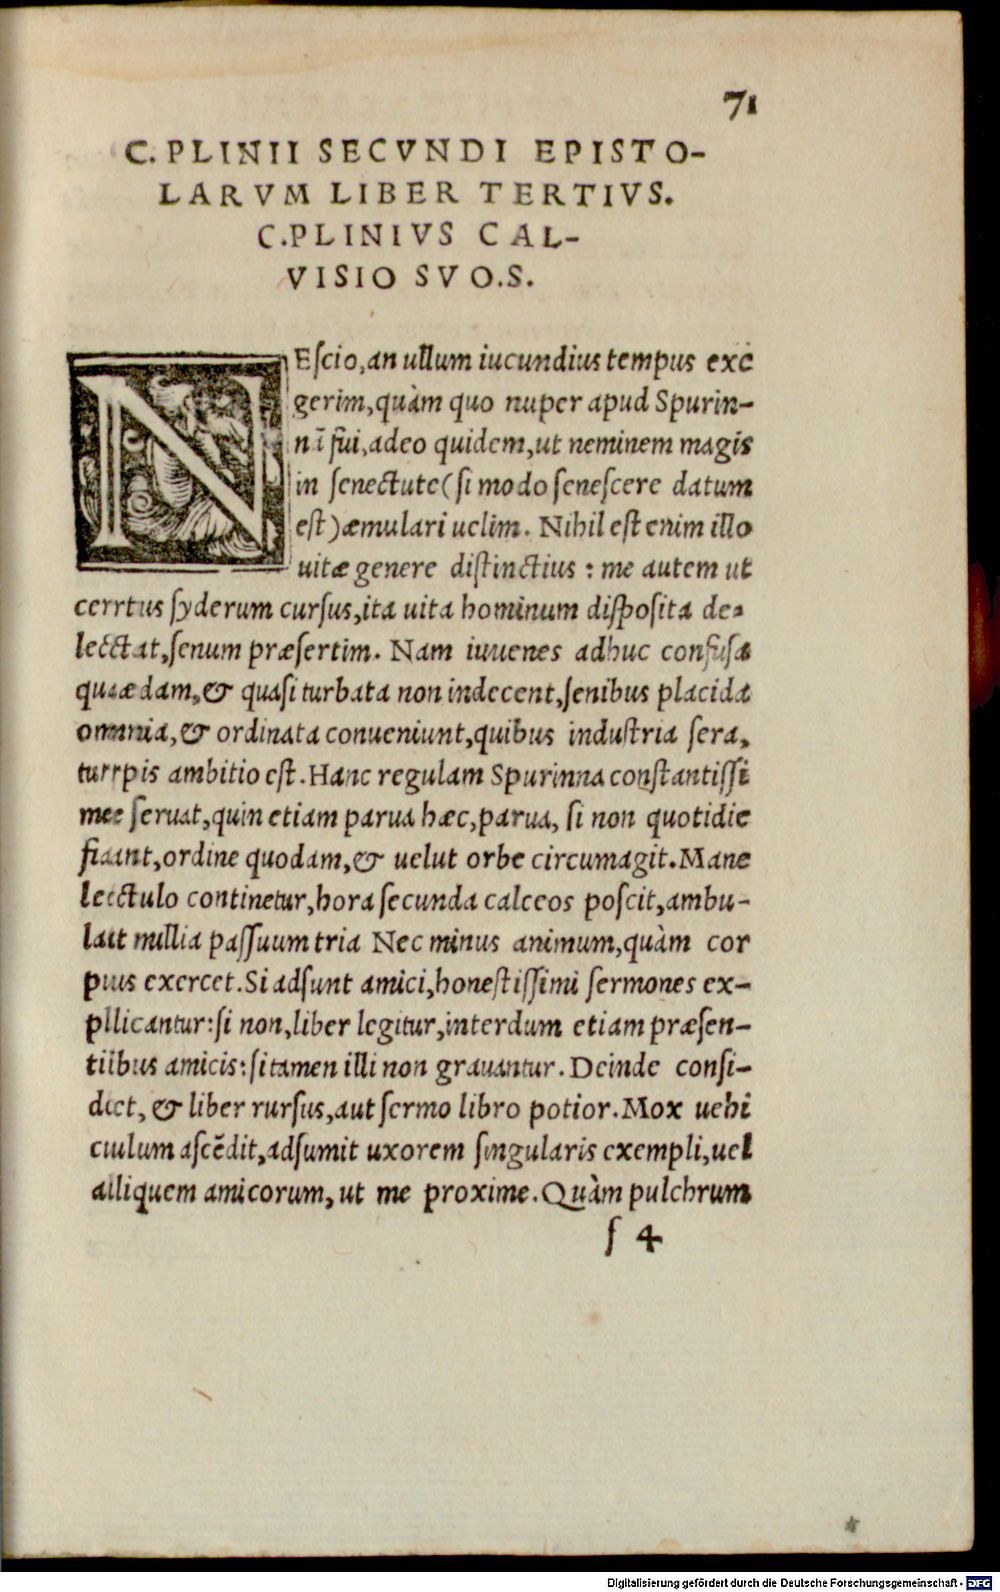 71
C. PLINII SECVNDI EPISTO-
LARVM LIBER TERTIVS.
C. PLINIVS CAL-
VISIO SVO. S.
NEſcio, an ullum iucundius tempus exe
gerim, quàm quo nuper apud Spurin-
nā fui, adeo quidem, ut neminem magis
in ſenectute (ſi modo ſeneſcere datum
eſt) æmulari uelim. Nihil eſt enim illo
uitæ genere diſtinctius: me autem ut
certus ſyderum curſus, ita uita hominum diſpoſita de-
lectat, ſenum præſertim. Nam iuuenes adhuc confuſa
quædam, & quaſi turbata non indecent, ſenibus placida
omnia, & ordinata conueniunt, quibus induſtria ſera,
turpis ambitio eſt. Hanc regulam Spurinna conſtantiſſi
me ſeruat, quin etiam parua hæc, parua, ſi non quotidie
fiant, ordine quodam, & uelut orbe circumagit. Mane
lectulo continetur, hora ſecunda calceos poſcit, ambu-
lat millia paſſuum tria Nec minus animum, quàm cor
pus exercet. Si adſunt amici, honeſtiſſimi ſermones ex-
plicantur: ſi non, liber legitur, interdum etiam præſen-
tibus amicis: ſi tamen illi non grauantur. Deinde conſi-
det, & liber rurſus, aut ſermo libro potior. Mox uehi
culum aſcēdit, adſumit uxorem ſingularis exempli, uel
aliquem amicorum, ut me proxime. Quàm pulchrum
ſ 4
Digitalisierung gefördert durch die Deutsche Forschungsgemeinschaft - DFG